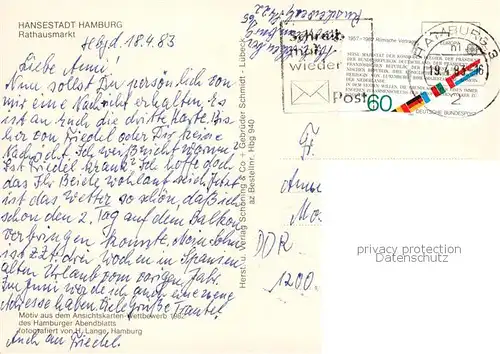 HANSESTADT HAMBURG
Rathausmarkt
Hbgd. 18.4.83
Liebe Anni!
Nun sollst Du persönlich von
mir eine Nachricht erhalten. Es
ist an Euch die dritte Karte. Bis
her von Friedel oder Dir keine
Nachricht. Ich weiß nicht warum?
Ist Friedel krank? Ich hoffe doch
das Ihr Beide wohlauf seid. Jetzt
ist das Wetter so schön, daß ich
schon den 2. Tag auf dem Balkon
verbringen konnte. Mein Sohn
ist z.Zt. drei Wochen in Spanien
alten Urlaub vom vorigen Jahr.
Im Juni werde ich auch eine neue
Adresse haben. Viele Grüße Trautel
Motiv aus dem Ansichtskarten-Wettbewerb 1982
des Hamburger Abendblatts
Fotografiert von H. Lange, Hamburg
Auch an Friedel.
Herst. u. Verlag Schöning & Co + Gebrüder Schmidt - Lübeck
az Bestellnr. Hbg 940
Schreib
mal
wieder
Post
1957-1982 Römische Verträge
60
DEUTSCHE BUNDESPOST
HAMBURG
19.4.83
2
Fr.
DDR
1200
privacy protection
Datenschutz